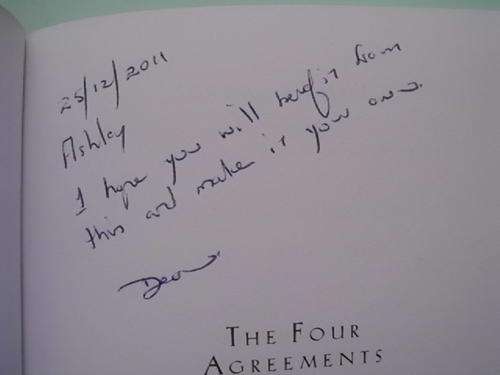 25/12/2011
Ashley
I hope you will benefit from
this and make it your own.
THE FOUR
AGREEMENTS